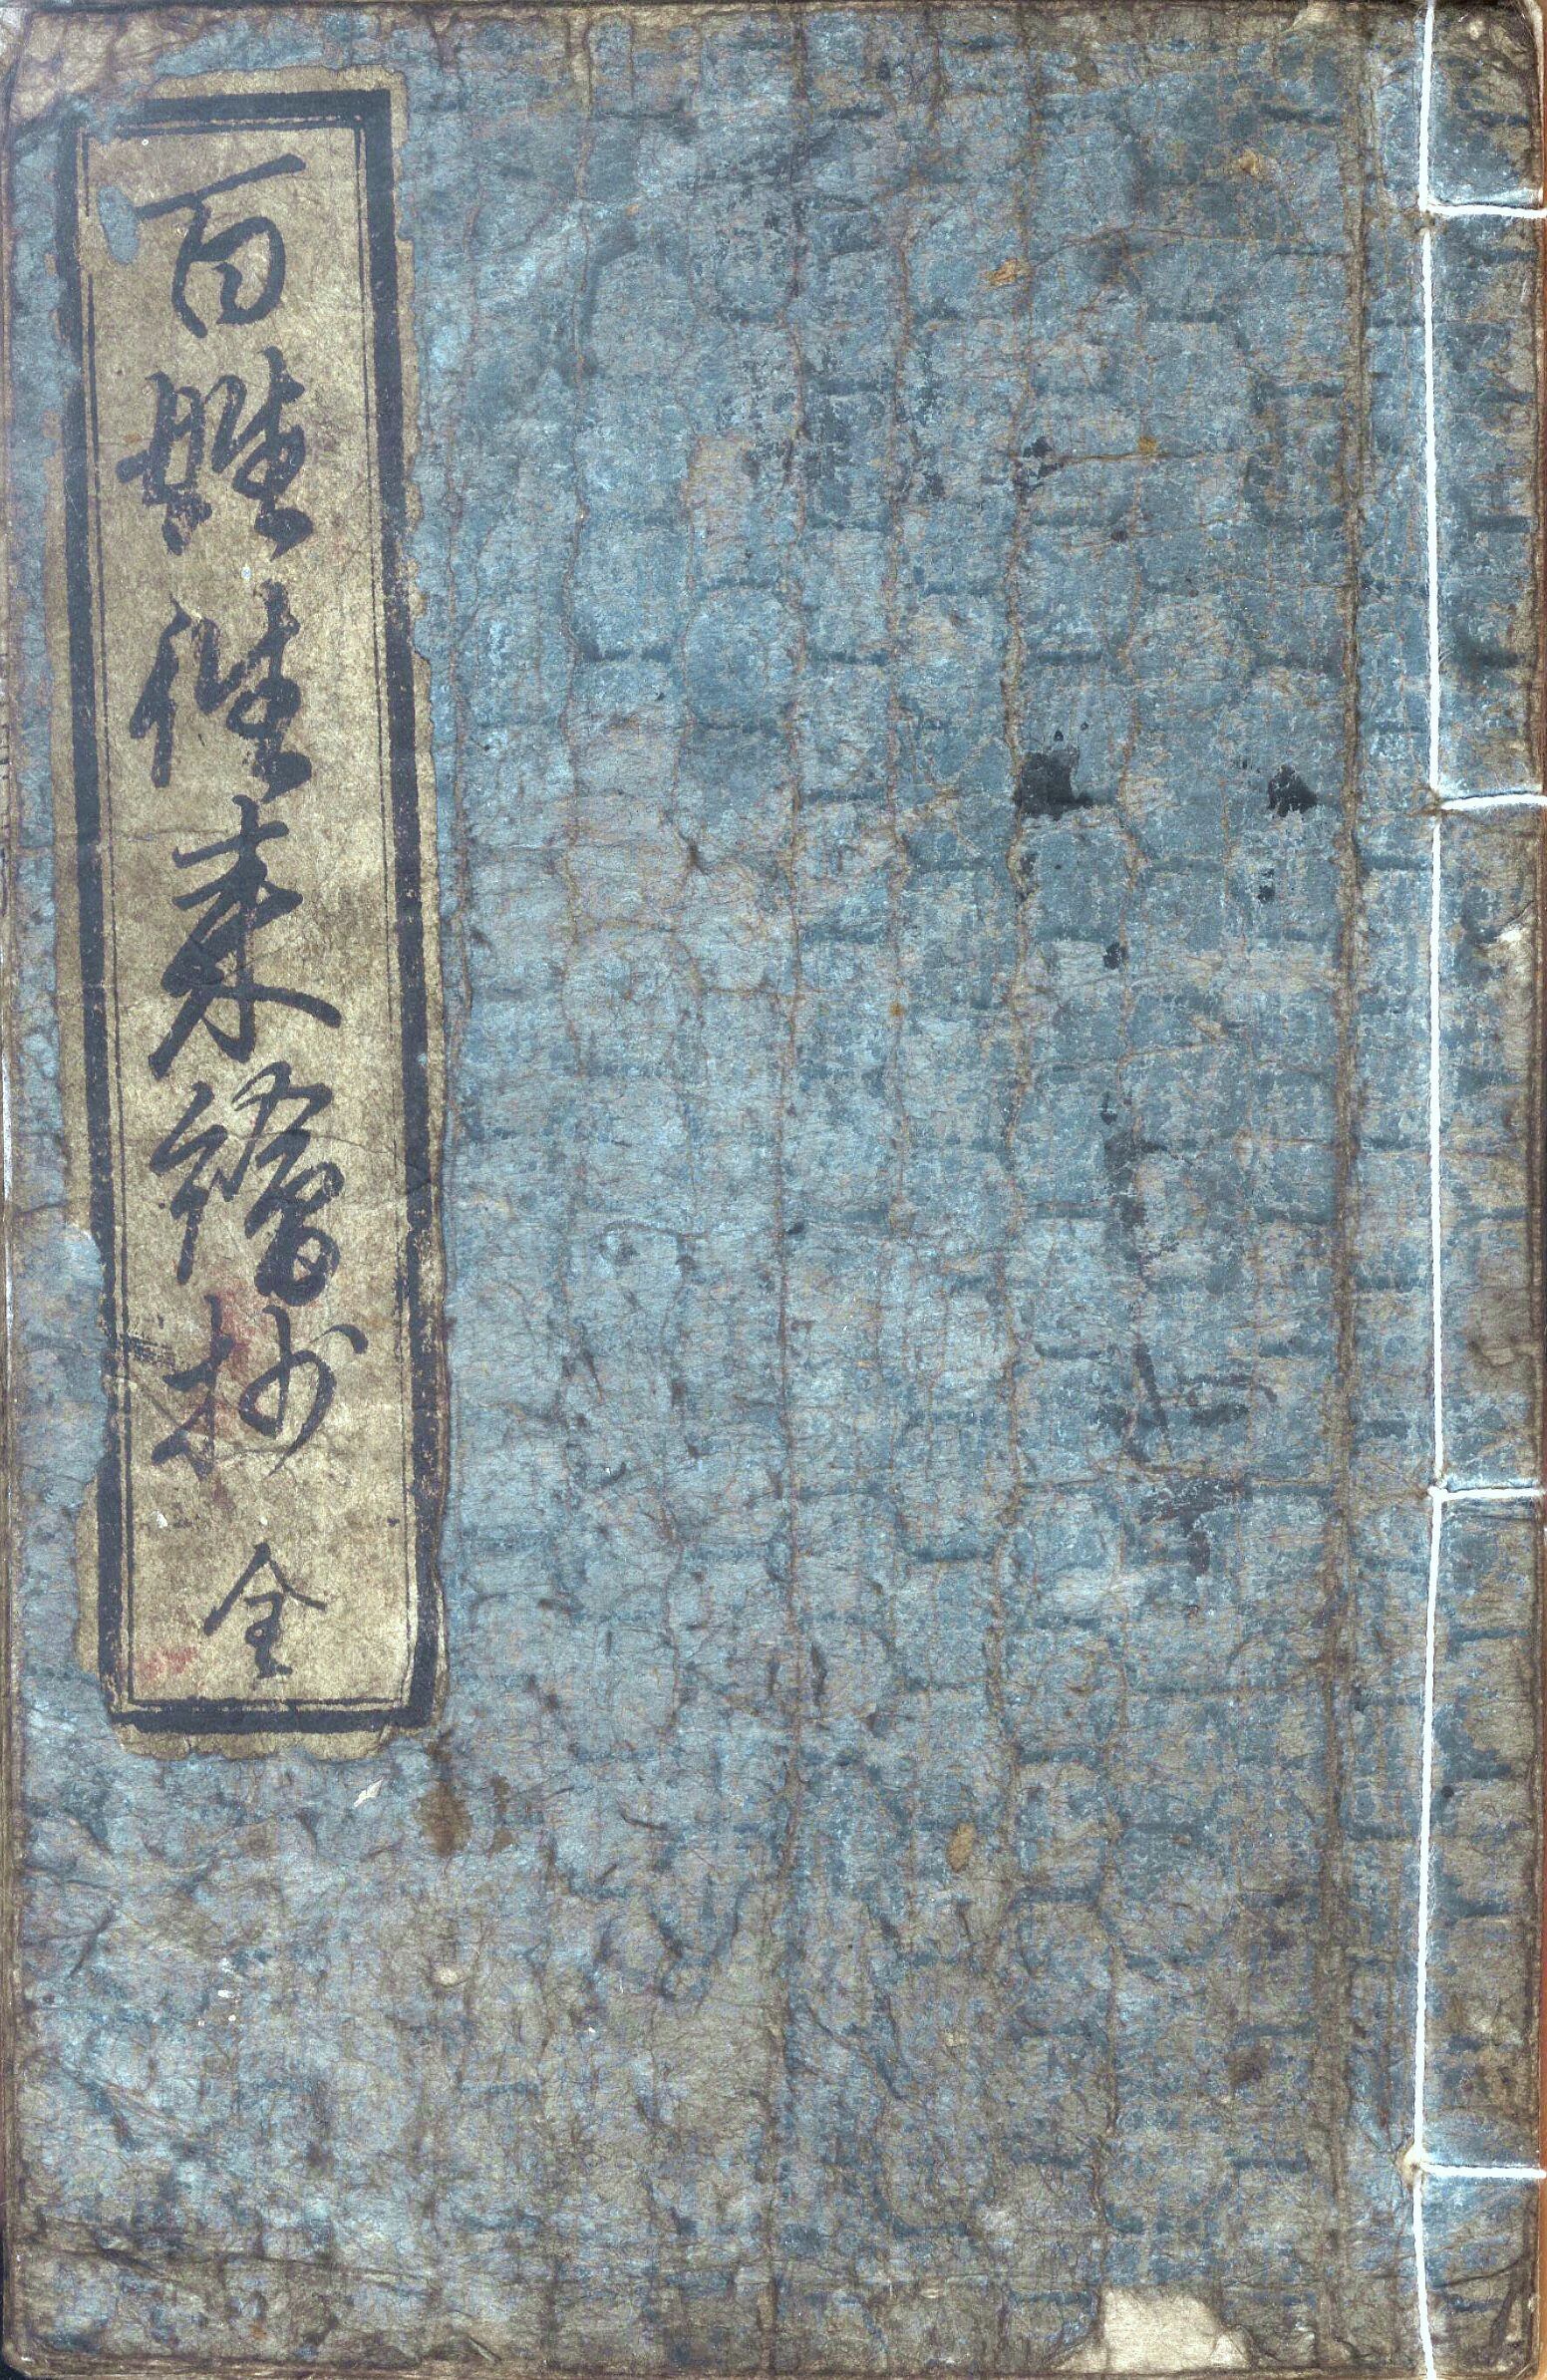 百姓往来繪抄 全